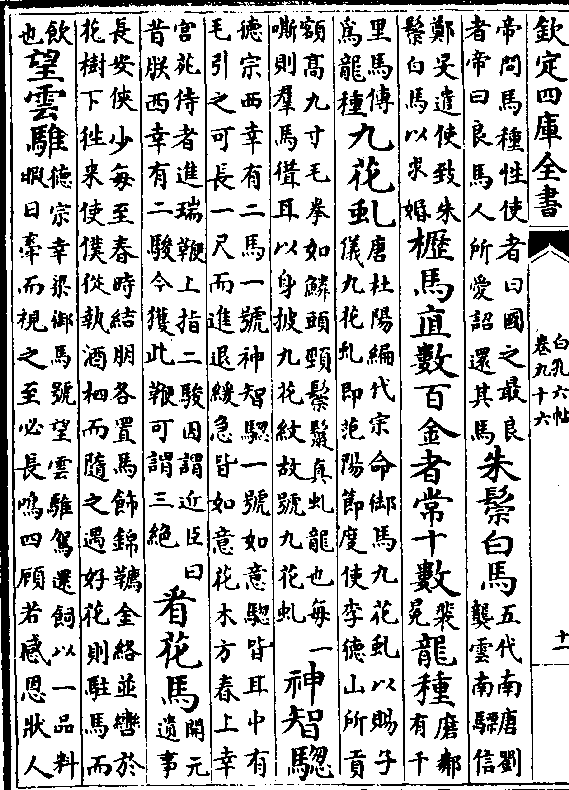 欽定四庫全書
白孔六帖
卷九十六
十一
帝問馬種性使者曰國之最良
者帝曰良馬人所愛詔還其馬
朱鬃白馬
五代南唐劉
龔雲南驃信
鄭旻遣使致朱
鬃白馬以求婚
櫪馬直數百金者常十數
裴
冕
龍種
磨鄰
有千
里馬傳
為龍種
九花虬
唐杜陽編代宗命御馬九花虬以賜子
儀九花虬即范陽節度使李德山所貢
額髙九寸毛拳如鱗頭頸鬃鬣真虬龍也每一
嘶則羣馬聳耳以身披九花紋故號九花虬
神智騘
德宗西幸有二馬一號神智騘一號如意騘皆耳中有
毛引之可長一尺而進退緩急皆如意花木方春上幸
宮苑侍者進瑞鞭上指二駿因謂近臣曰
昔朕西幸有二駿今獲此鞭可謂三絕
看花馬
開元
遺事
長安俠少每至春時結朋各置馬飾錦韉金絡並轡於
花樹下徃来使僕從執酒杯而隨之遇好花則駐馬而
飲
也
望雲騅
德宗幸梁御馬號望雲騅駕還飼以一品料
暇日牽而視之至必長鳴四顧若感恩狀人